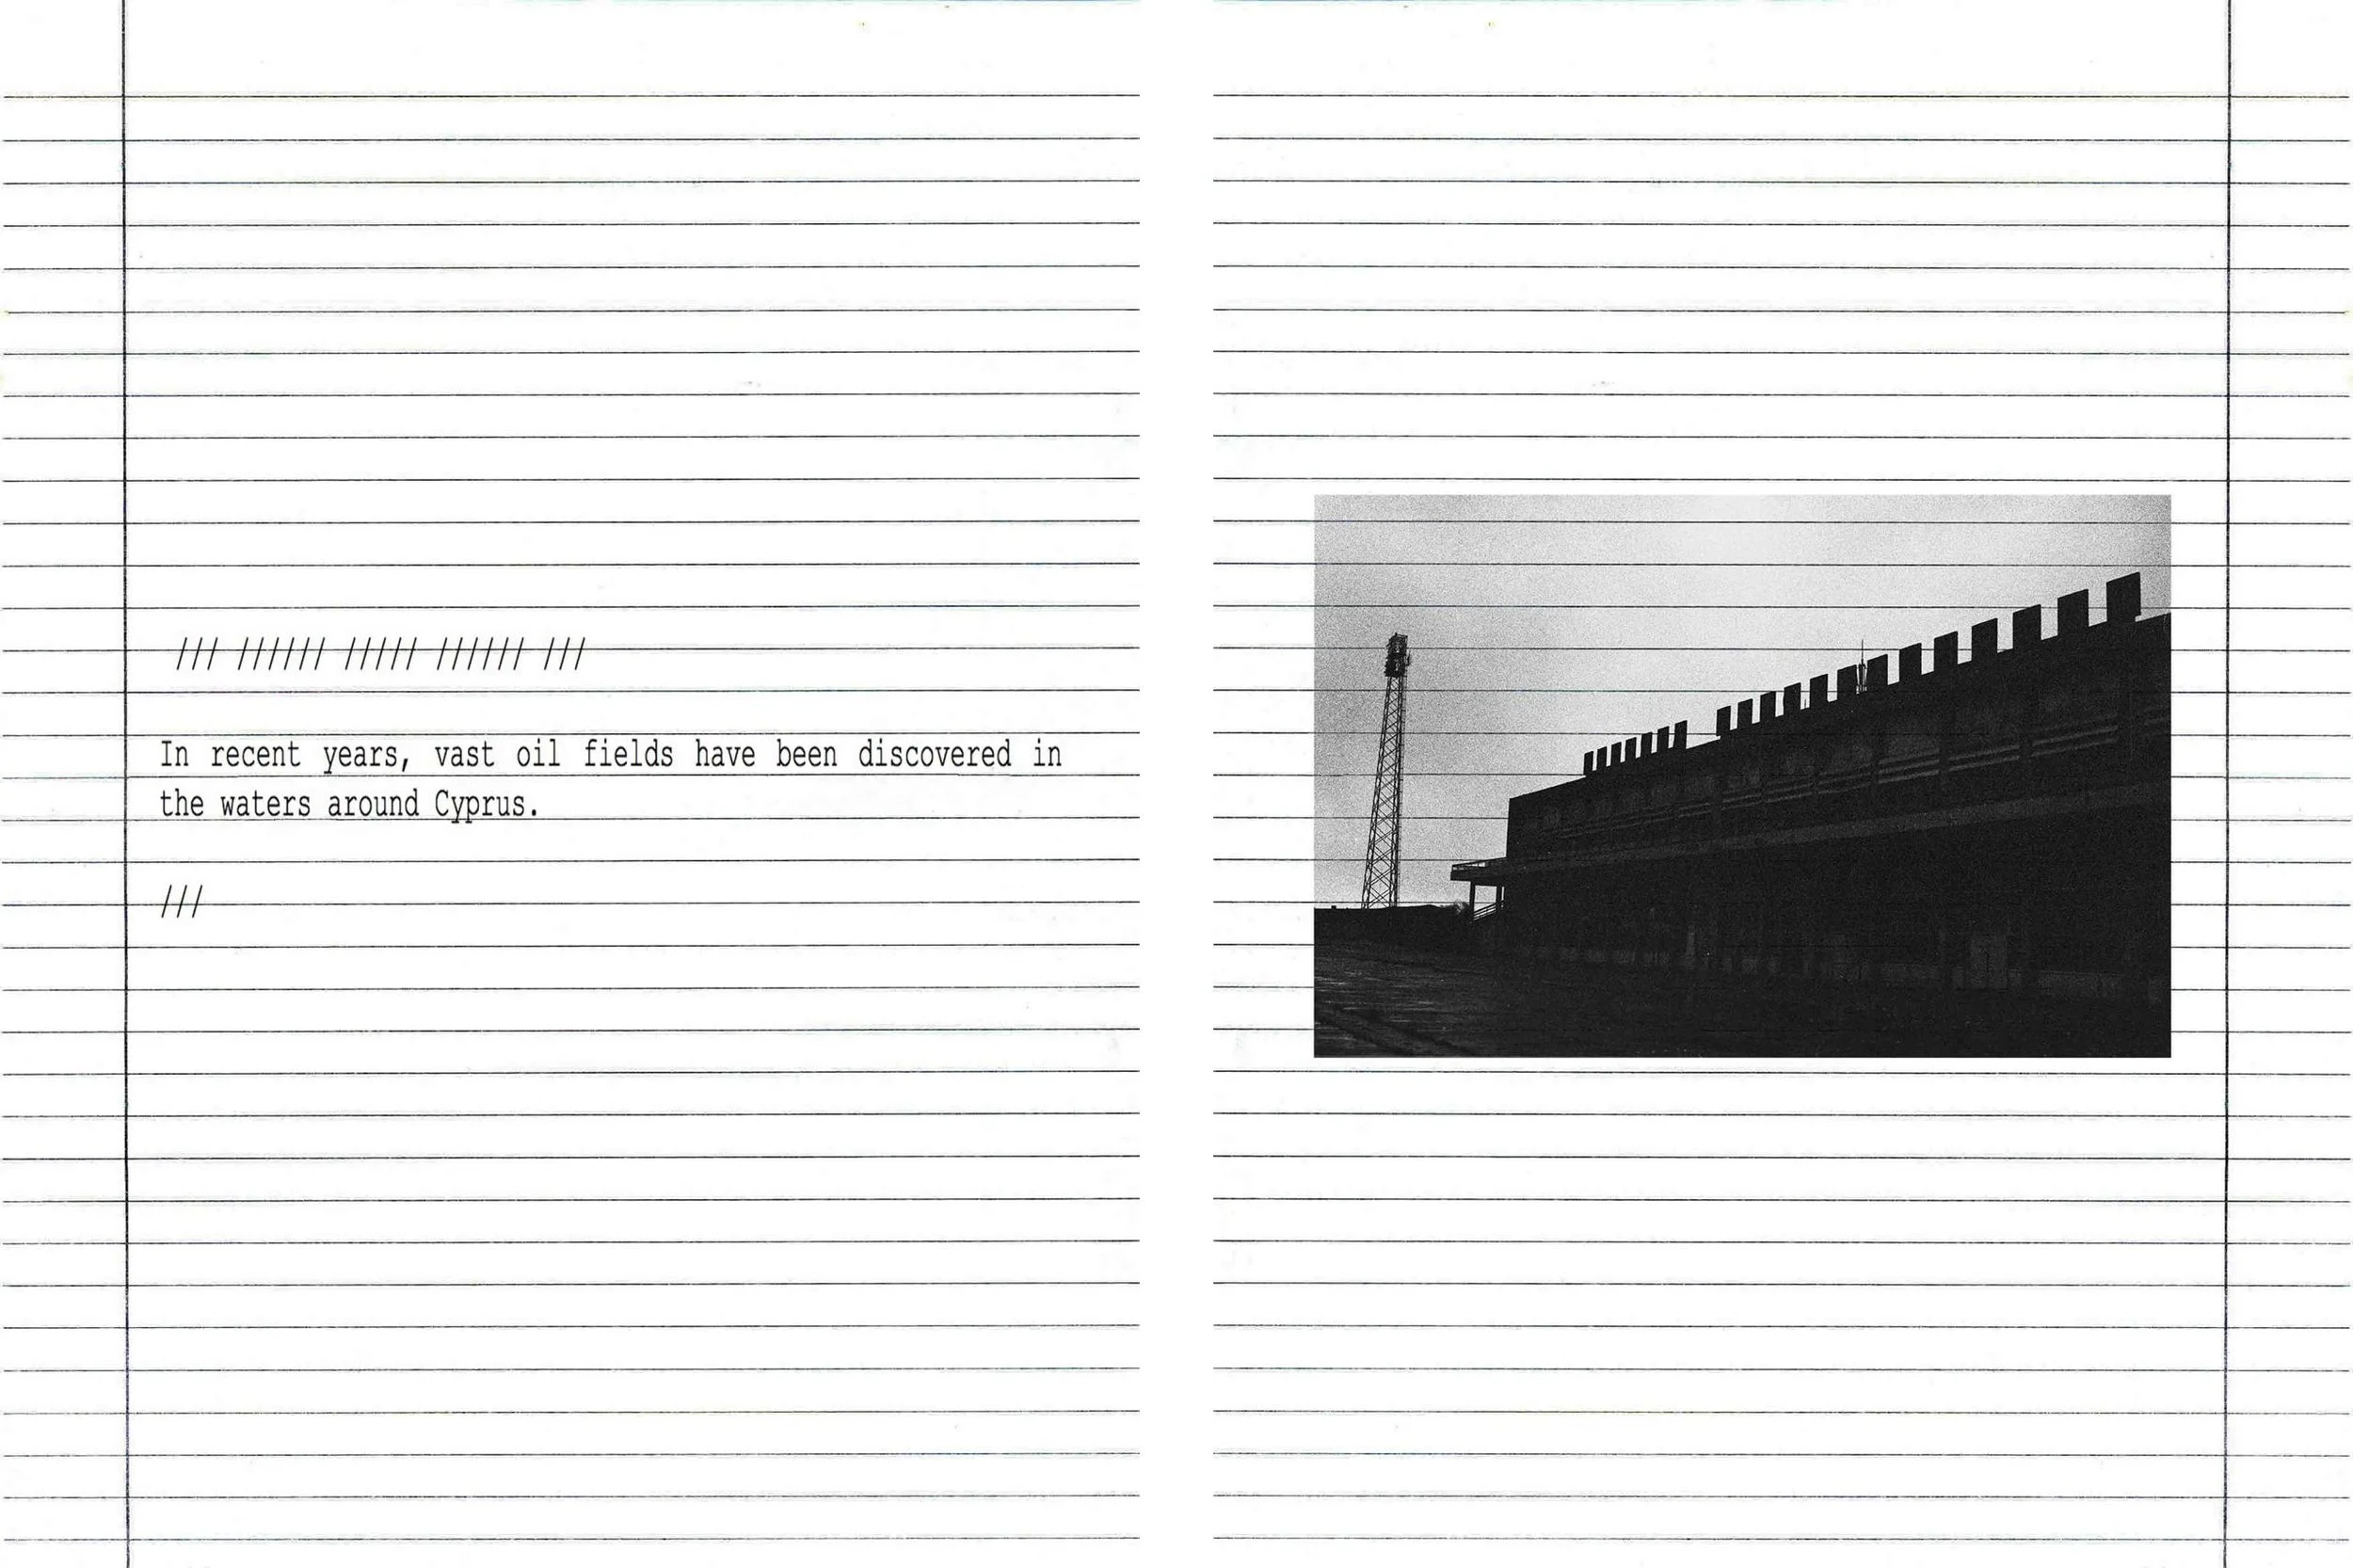 /// ////// ///// ////// ///
In recent years, vast oil fields have been discovered in
the waters around Cyprus.
///